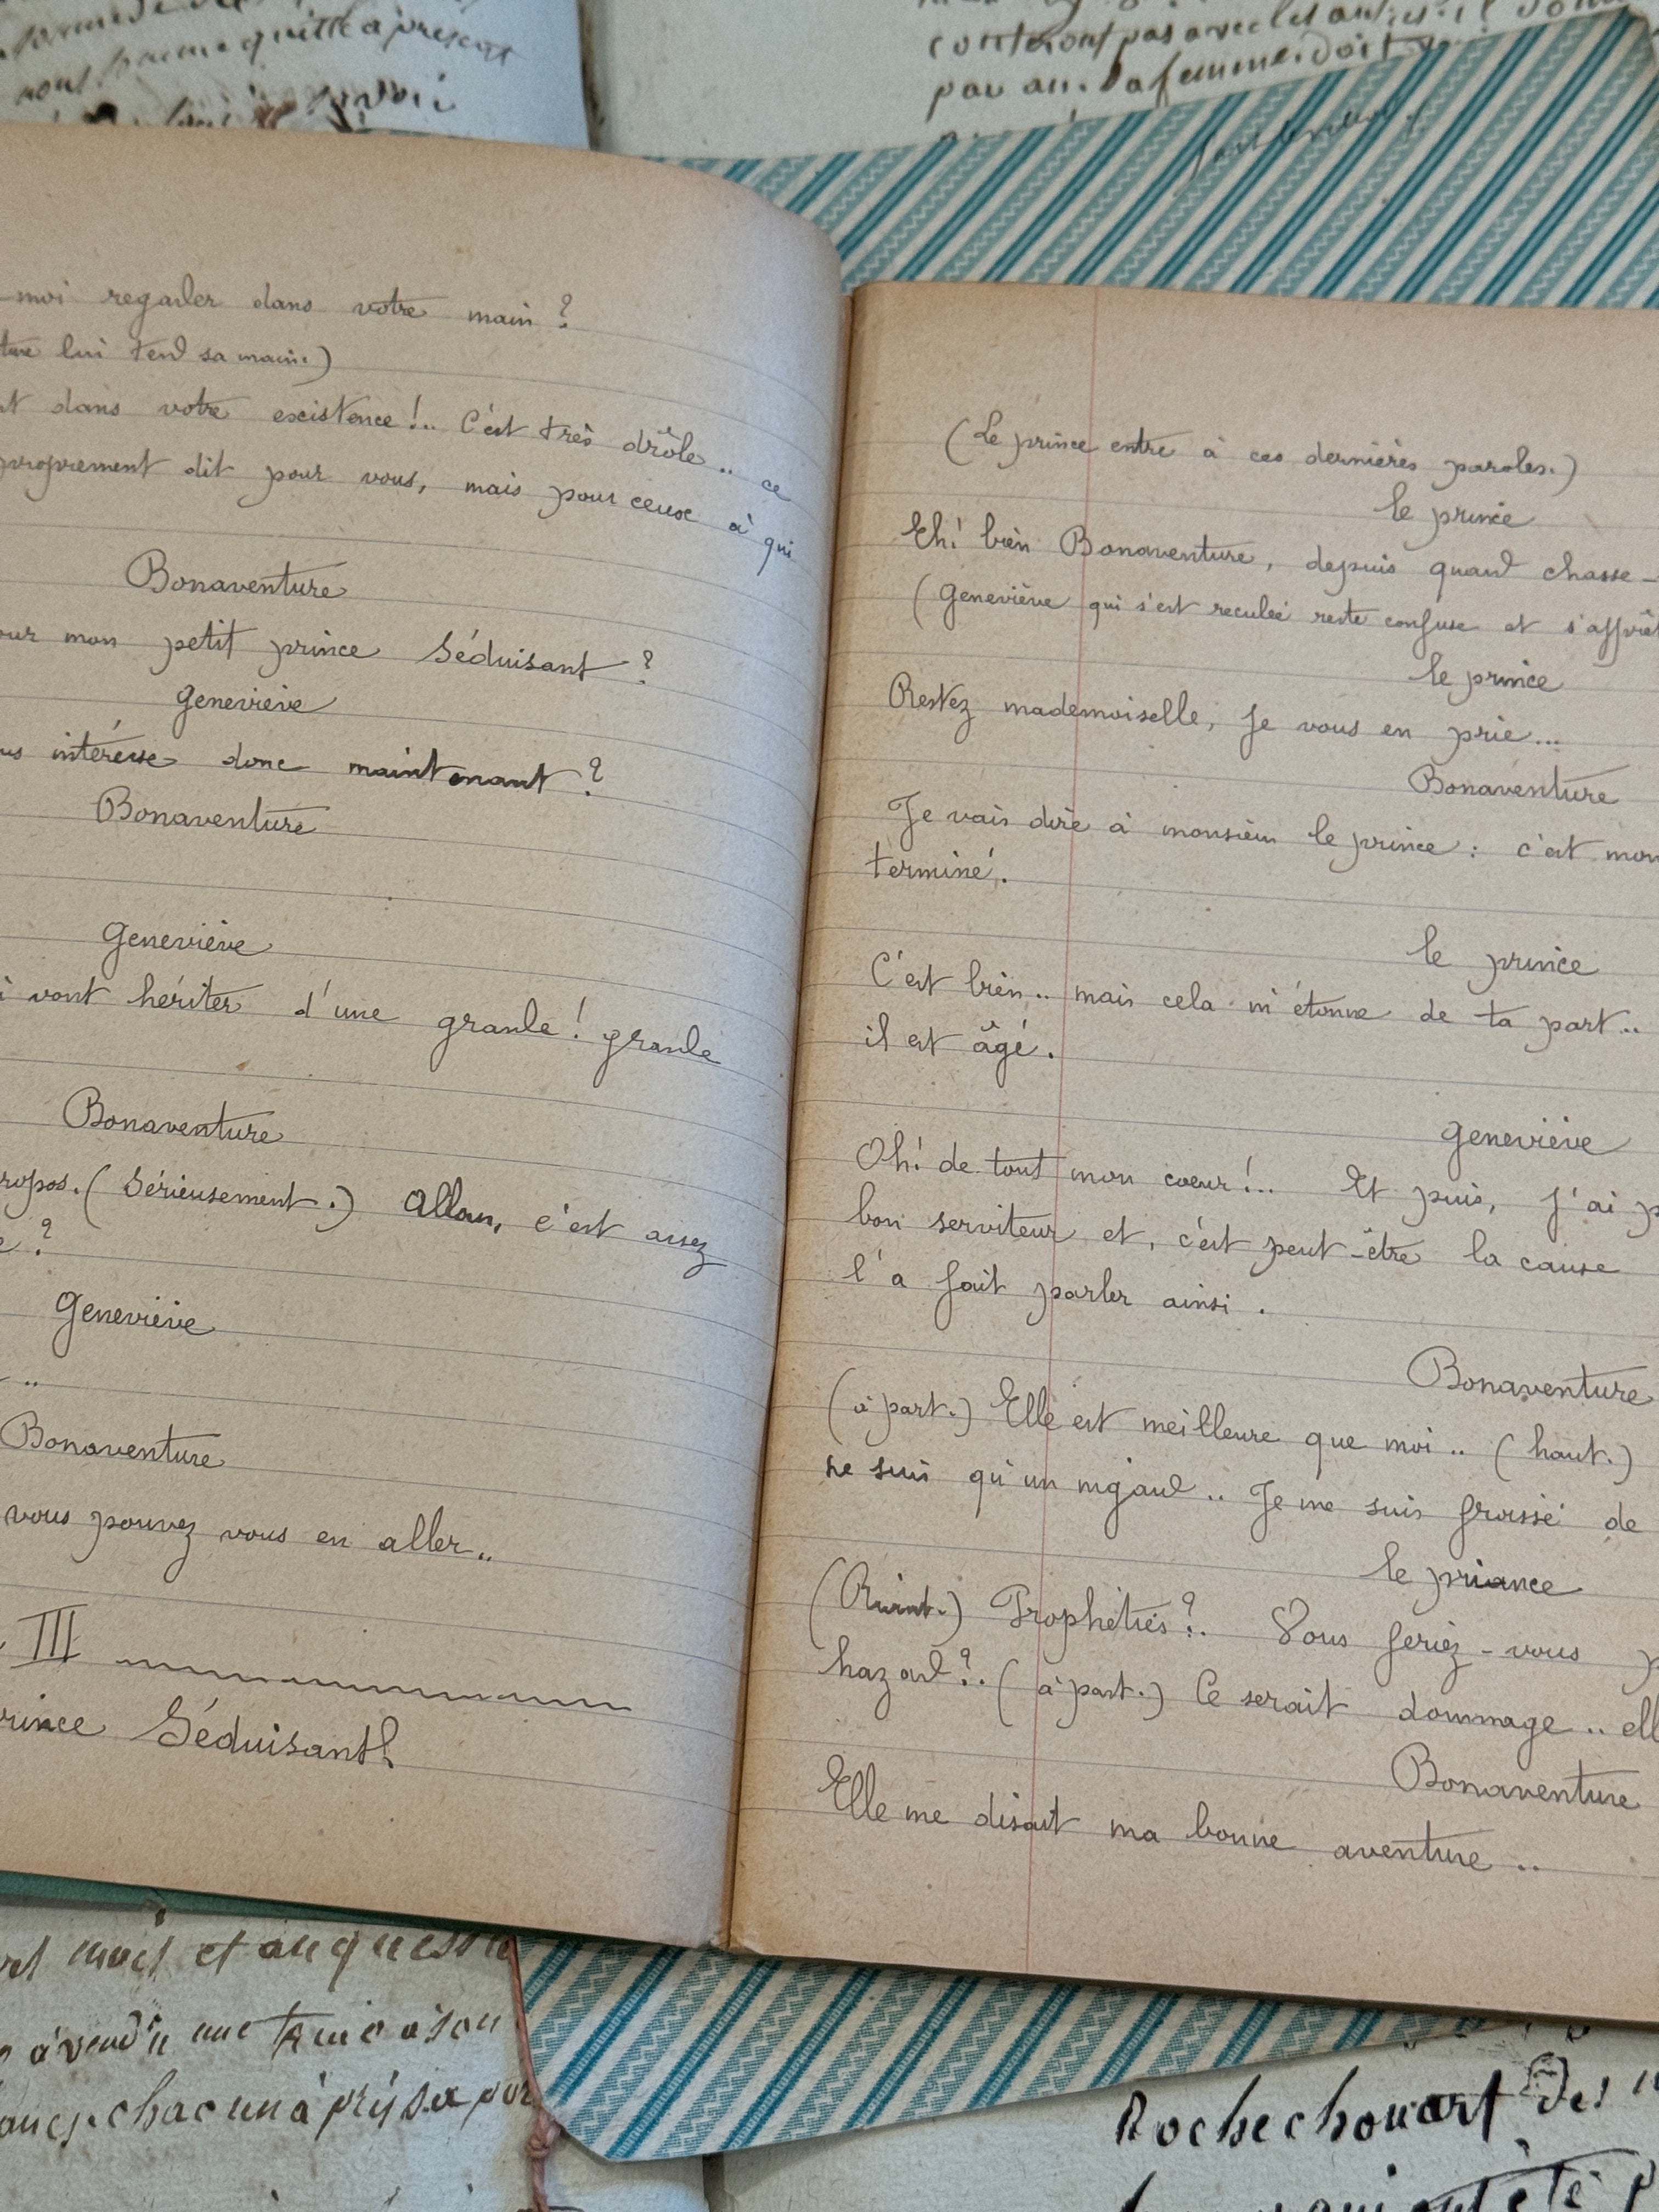 nous
quitte à présent
conteront pas avec les
par an. La femme doit
-moi regarder dans votre main ?
ture lui tend sa main.)
nt dans votre existence !.. C'est très drôle .. ce
proprement dit pour vous, mais pour ceux à qui
Bonaventure
our mon petit prince Séduisant ?
Geneviève
us intéresse donc maintenant ?
Bonaventure
Geneviève
i vont hériter d'une grande ! grande
Bonaventure
ropos. (Sérieusement.) Allons, c'est assez
e ?
Geneviève
..
Bonaventure
vous pouvez vous en aller..
III
rince Séduisant
(Le prince entre à ces dernières paroles.)
le prince
Eh! bien Bonaventure, depuis quand chasse-
(Geneviève qui s'est reculée reste confuse et s'apprêt
le prince
Restez mademoiselle, je vous en prie...
Bonaventure
Je vais dire à monsieur le prince : c'est mon
terminé.
le prince
C'est bien.. mais cela m'étonne de ta part..
il est âgé.
Geneviève
Oh! de tout mon cœur !.. Et puis, j'ai p
bon serviteur et, c'est peut-être la cause
l'a fait parler ainsi.
Bonaventure
(à part.) Elle est meilleure que moi.. (haut.)
ne suis qu'un nigaud.. Je me suis froissé de
le priance
(Riant.) Prophéties ?.. Vous seriez-vous p
hazard ?.. (à part.) Ce serait dommage.. ell
Bonaventure
Elle me disait ma bonne aventure ..
mois et
à vendu une
chacun à
Rochechouart des